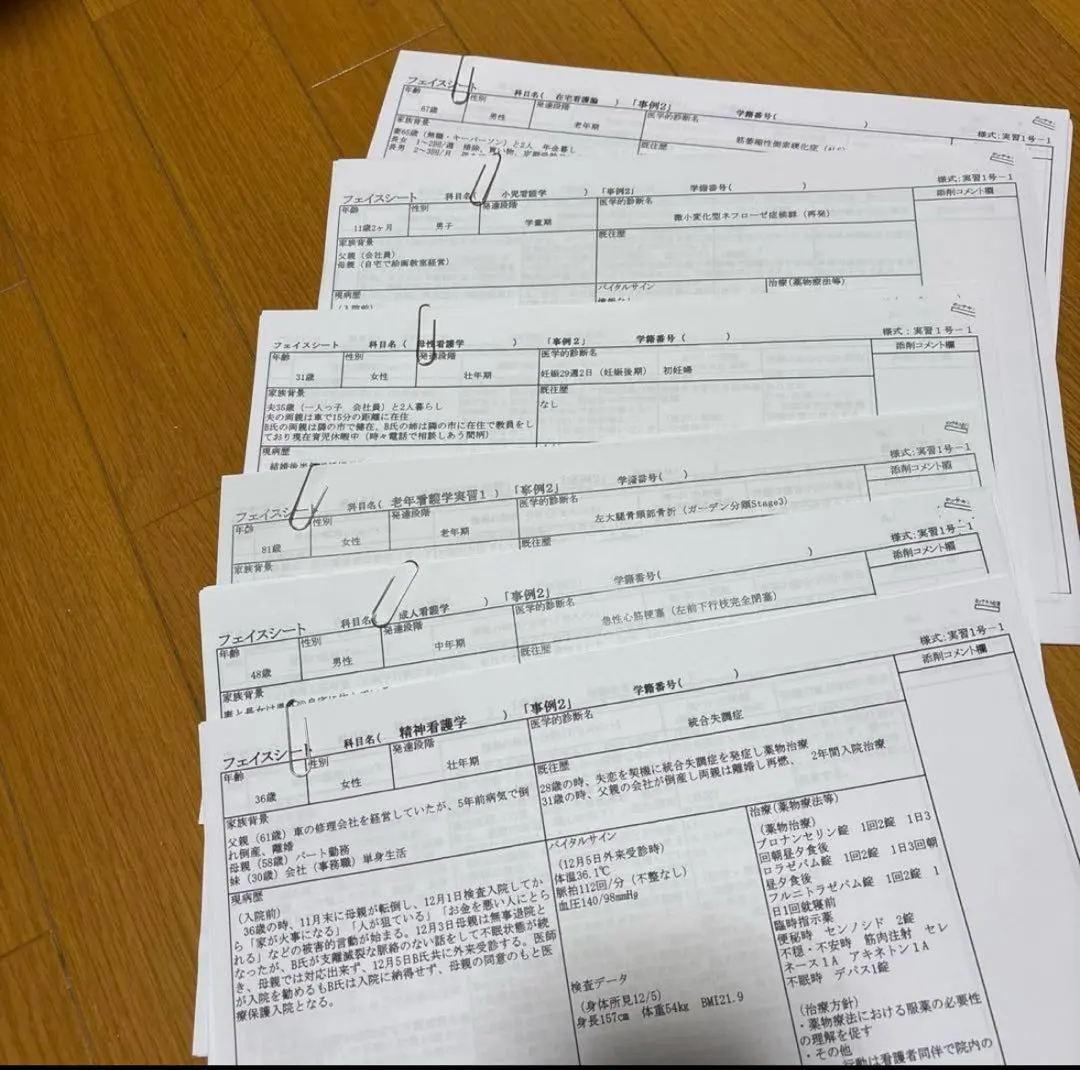 フェイスシート 科目名( 在宅看護論 ) 「事例2」 学籍番号( )
様式:実習1号-1
年齢 性別 発達段階 医学的診断名
67歳 男性 老年期 筋萎縮性側索硬化症
家族背景 既往歴
妻65歳(無職・キーパーソン)と2人 年金暮し
長女 1~2回/週 掃除、買い物、
長男 2~3回/月
フェイスシート 科目名( 小児看護学 ) 「事例2」 学籍番号( )
様式:実習1号-1
年齢 性別 発達段階 医学的診断名 添削コメント欄
11歳2ヶ月 男子 学童期 微小変化型ネフローゼ症候群(再発)
家族背景 既往歴
父親(会社員)
母親(自宅で絵画教室経営)
現病歴 バイタルサイン 治療(薬物療法等)
(入院前)
フェイスシート 科目名( 母性看護学 ) 「事例2」 学籍番号( )
様式:実習1号-1
年齢 性別 発達段階 医学的診断名 添削コメント欄
31歳 女性 壮年期 妊娠29週2日(妊娠後期) 初妊婦
家族背景 既往歴
夫35歳(一人っ子 会社員)と2人暮らし なし
夫の両親は車で15分の距離に在住
B氏の両親は隣の市で健在、B氏の姉は隣の市に在住で教員をし
ており現在育児休暇中(時々電話で相談しあう間柄)
現病歴
フェイスシート 科目名( 老年看護学実習1 ) 「事例2」 学籍番号( )
様式:実習1号-1
年齢 性別 発達段階 医学的診断名 添削コメント欄
81歳 女性 老年期 左大腿骨頸部骨折(ガーデン分類Stage3)
家族背景 既往歴
フェイスシート 科目名( 成人看護学 ) 「事例2」 学籍番号( )
様式:実習1号-1
年齢 性別 発達段階 医学的診断名 添削コメント欄
48歳 男性 中年期 急性心筋梗塞(左前下行枝完全閉塞)
家族背景 既往歴
フェイスシート 科目名( 精神看護学 ) 「事例2」 学籍番号( )
様式:実習1号-1
年齢 性別 発達段階 医学的診断名 添削コメント欄
36歳 女性 壮年期 統合失調症
家族背景
父親(61歳)車の修理会社を経営していたが、5年前病気で倒
れ倒産、離婚
母親(58歳)パート勤務
妹(30歳)会社(事務職)単身生活
既往歴
28歳の時、失恋を契機に統合失調症を発症し薬物治療
31歳の時、父親の会社が倒産し両親は離婚し再燃、 2年間入院治療
現病歴
(入院前)
36歳の時、11月末に母親が転倒し、12月1日検査入院してか
ら「家が火事になる」「人が狙ている」「お金を悪い人にとら
れる」などの被害的言動が始まる。12月3日母親は無事退院と
なったが、B氏が支離滅裂な脈絡のない話をして不眠状態が続
き、母親では対応出来ず、12月5日B氏共に外来受診する。医師
が入院を勧めるもB氏は入院に納得せず、母親の同意のもと医
療保護入院となる。
バイタルサイン
(12月5日外来受診時)
体温36.1℃
脈拍112回/分(不整なし)
血圧140/98mmHg
検査データ
(身体所見12/5)
身長157cm 体重54kg BMI21.9
治療(薬物療法等)
(薬物治療)
ブロナンセリン錠 1回2錠 1日3
回朝昼夕食後
ロラゼパム錠 1回2錠 1日3回朝
昼夕食後
フルニトラゼパム錠 1回2錠 1
日1回就寝前
臨時指示薬
便秘時 センノシド 2錠
不穏・不安時 筋肉注射 セレ
ネース1A アキネトン1A
不眠時 デパス1錠
(治療方針)
・薬物療法における服薬の必要性
の理解を促す
・その他
行動は看護者同伴で院内の